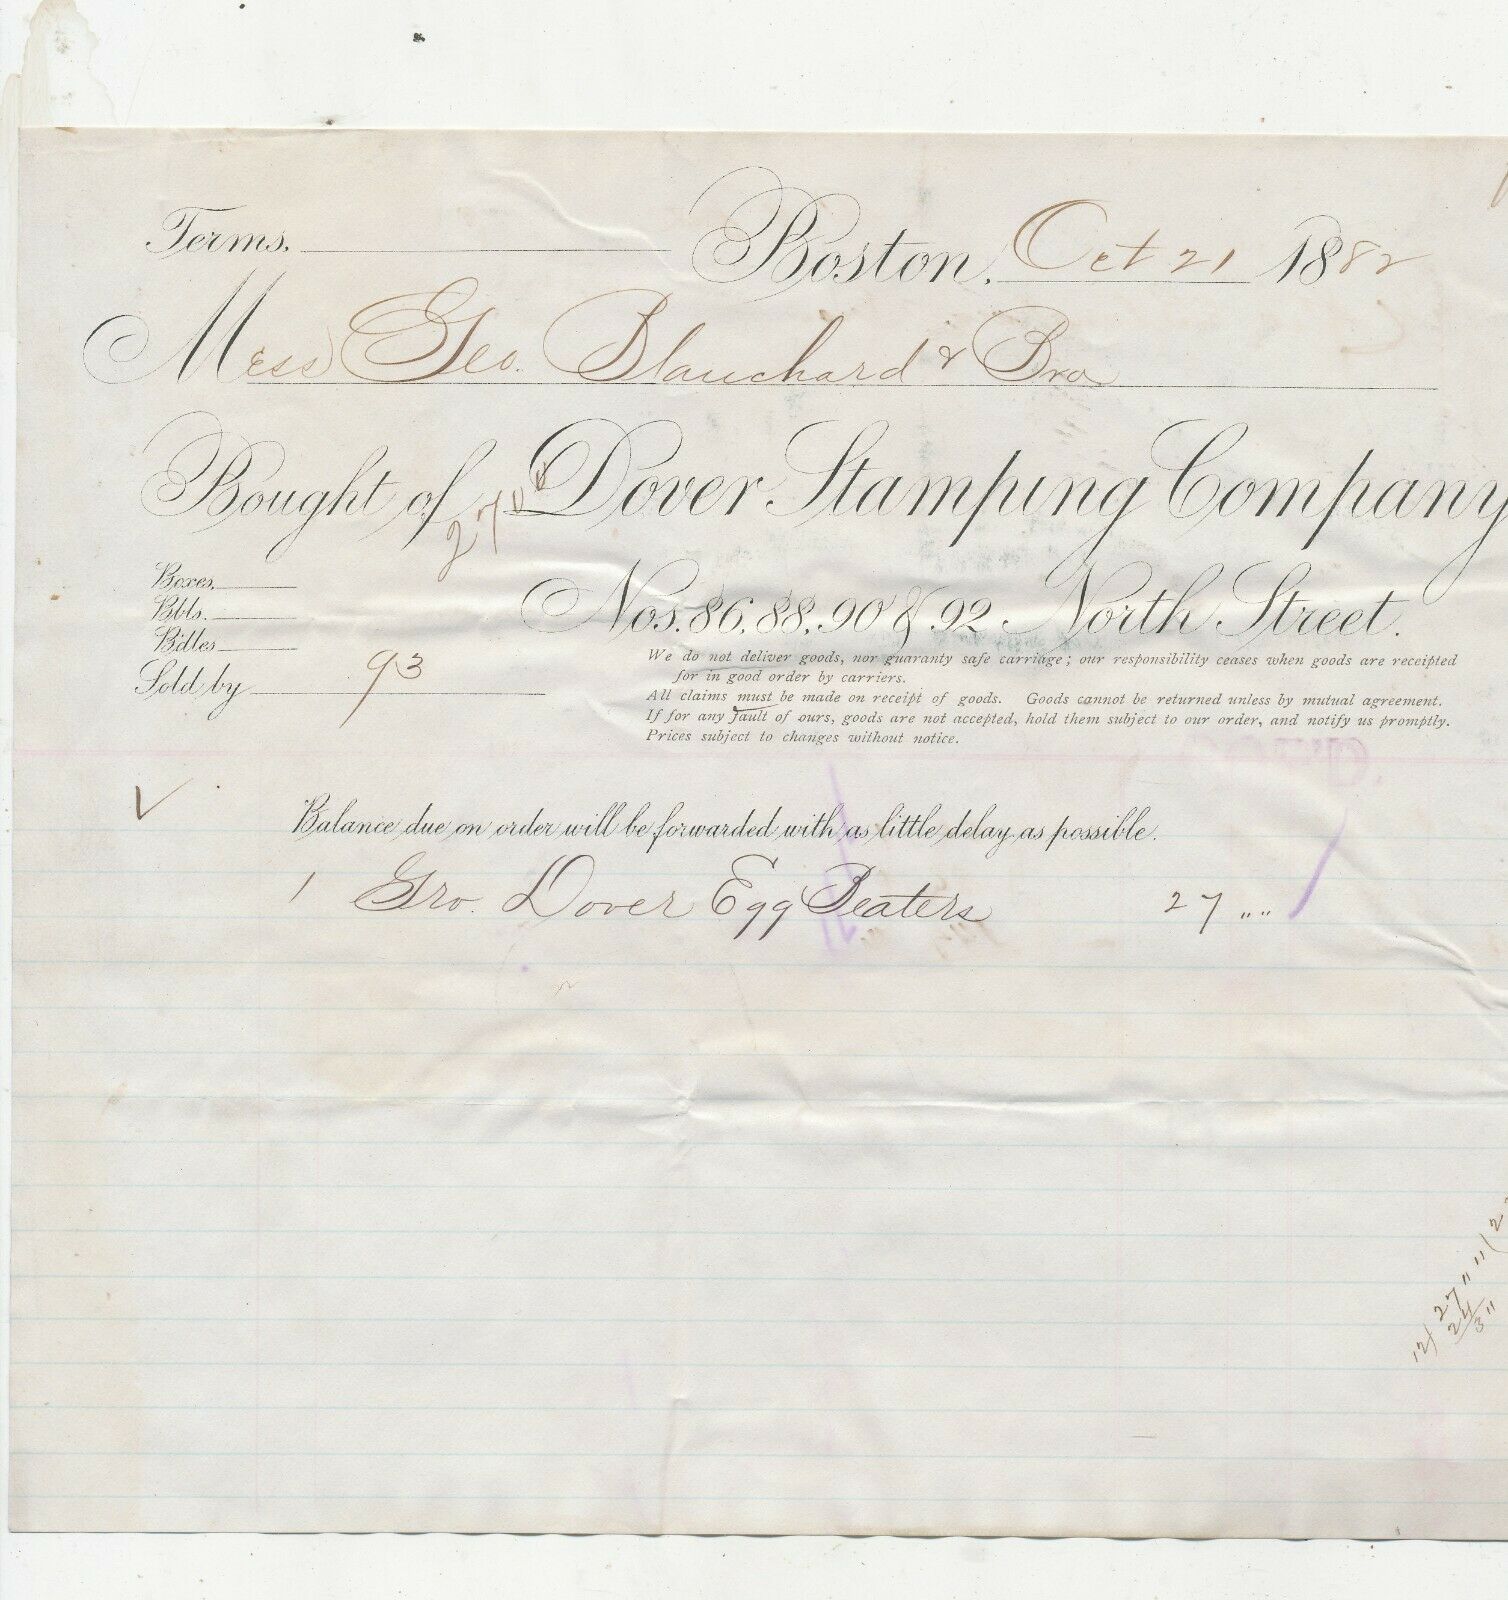 Terms. Boston, Oct 21 1882
Mess Geo. Blanchard & Bro
Bought of Dover Stamping Company
2700
Boxes.
Bbls.
Bdles
Sold by 93
Nos. 86, 88, 90 & 92 North Street.
We do not deliver goods, nor guaranty safe carriage; our responsibility ceases when goods are receipted
for in good order by carriers.
All claims must be made on receipt of goods. Goods cannot be returned unless by mutual agreement.
If for any fault of ours, goods are not accepted, hold them subject to our order, and notify us promptly.
Prices subject to changes without notice.
Balance due on order will be forwarded with as little delay as possible.
1 Gro. Dover Egg Beaters 27 " "
12) 27 " " ( 2
24
3 "